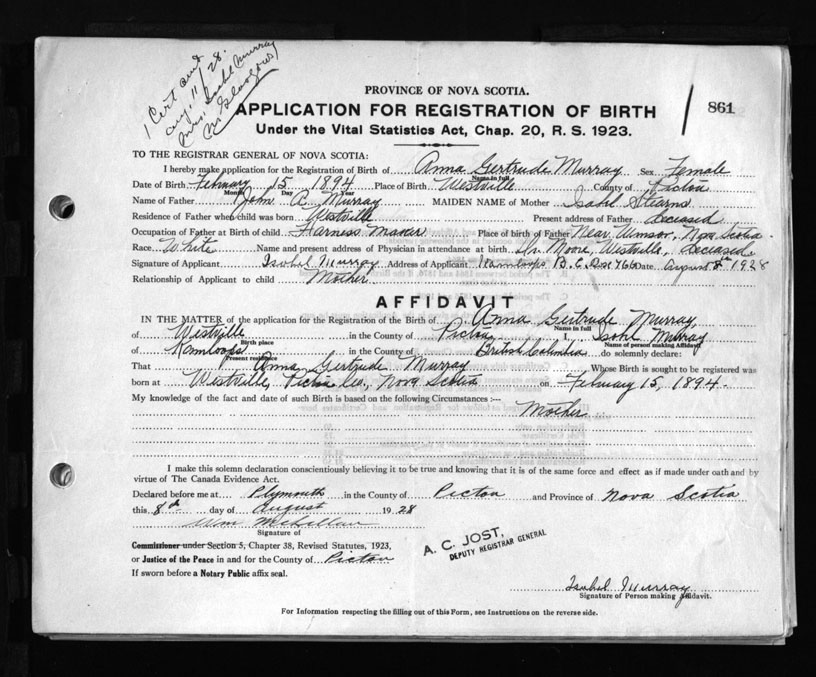 1 Cert sent
Aug. 11/28.
Mrs. Isobel Murray
N. Glasgow
PROVINCE OF NOVA SCOTIA.
APPLICATION FOR REGISTRATION OF BIRTH
861
Under the Vital Statistics Act, Chap. 20, R. S. 1923.
TO THE REGISTRAR GENERAL OF NOVA SCOTIA:
I hereby make application for the Registration of Birth of Anna Gertrude Murray Sex Female
Name in full
Date of Birth February 15 1894 Place of Birth Westville County of Pictou
Month Day Year
Name of Father John A. Murray MAIDEN NAME of Mother Isobel Stearns
Residence of Father when child was born Westville Present address of Father deceased
Occupation of Father at Birth of child Harness Maker Place of birth of Father Near Windsor, Nova Scotia.
Race White Name and present address of Physician in attendance at birth Dr. Moore, Westville, deceased.
Signature of Applicant Isobel Murray Address of Applicant Kamloops B.C. Box 466 Date August 8th 1928
Relationship of Applicant to child Mother
AFFIDAVIT
IN THE MATTER of the application for the Registration of the Birth of Anna Gertrude Murray,
Name in full
of Westville in the County of Pictou I, Isobel Murray
Birth place Name of person making Affidavit
of Kamloops in the County of British Columbia do solemnly declare:
Present residence
That Anna Gertrude Murray Whose Birth is sought to be registered was
born at Westville, Pictou Co., Nova Scotia on February 15, 1894.
My knowledge of the fact and date of such Birth is based on the following Circumstances:—
Mother
I make this solemn declaration conscientiously believing it to be true and knowing that it is of the same force and effect as if made under oath and by
virtue of The Canada Evidence Act.
Declared before me at Plymouth in the County of Pictou and Province of Nova Scotia
this 8th day of August 1928
Wm
Signature of
Commissioner under Section 5, Chapter 38, Revised Statutes, 1923,
or Justice of the Peace in and for the County of Pictou
If sworn before a Notary Public affix seal.
A. C. JOST,
DEPUTY REGISTRAR GENERAL
Isobel Murray
Signature of Person making Affidavit.
For Information respecting the filling out of this Form, see Instructions on the reverse side.